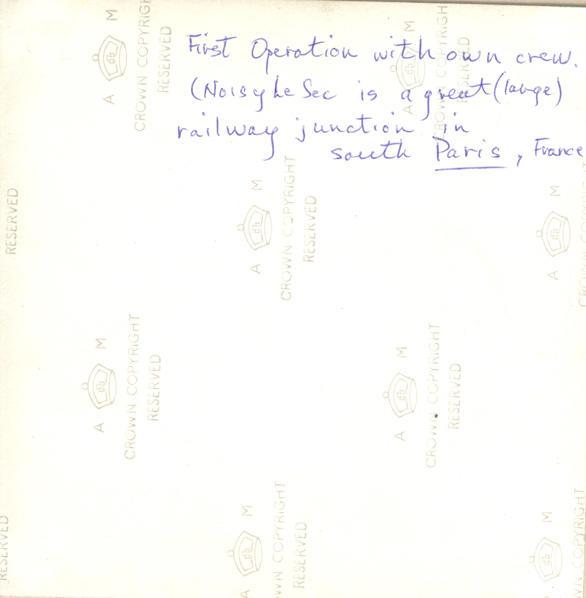 First Operation with own crew.
(Noisy Le Sec is a great (large)
railway junction in
south Paris, France
A M
CROWN COPYRIGHT
RESERVED
RESERVED
A M
CROWN COPYRIGHT
RESERVED
A M
CROWN COPYRIGHT
RESERVED
A M
A M
CROWN COPYRIGHT
RESERVED
A M
CROWN COPYRIGHT
RESERVED
RESERVED
A M
WN COPYRIGHT
RESERVED
A M
WN COPYRIGHT